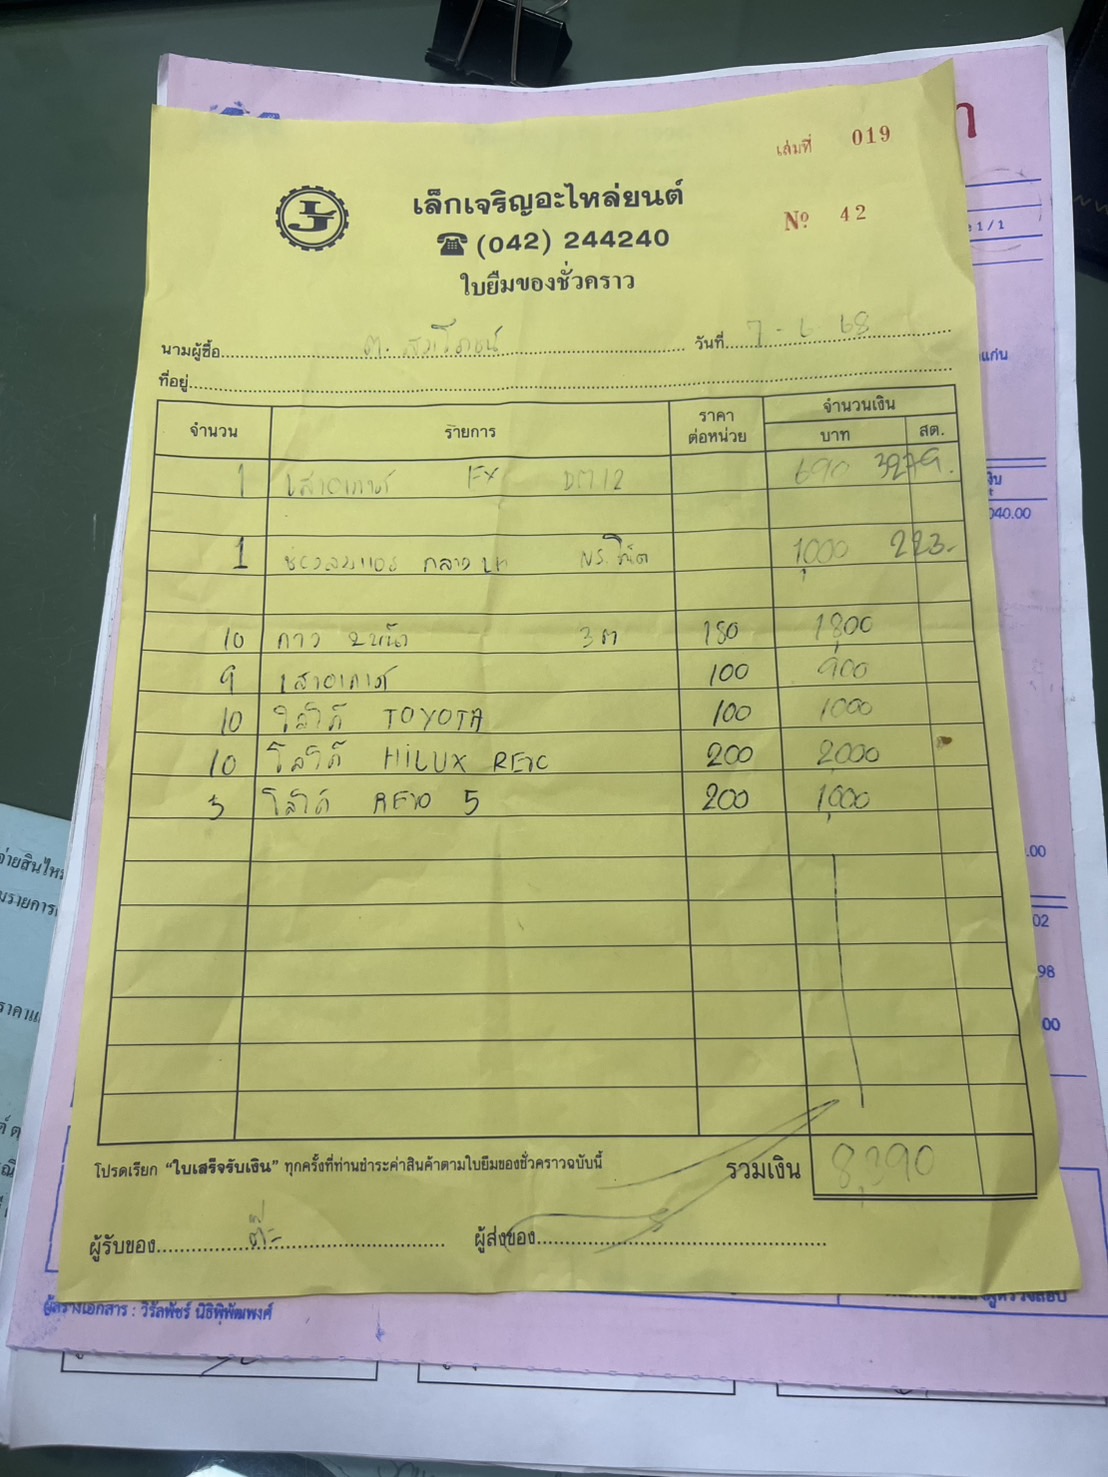 เล่มที่ 019
เล็กเจริญอะไหล่ยนต์
(042) 244240
Nº 42
ใบยืมของชั่วคราว
นามผู้ซื้อ วันที่ 7 - 6 68
ที่อยู่
จำนวน รายการ ราคาต่อหน่วย จำนวนเงิน
บาท สต.
1 เสาอากาศ FX 690 3279.
1 1,000 223.-
10 กาว 3 ต 180 1,800
9 เสาอากาศ 100 900
10 โลโก้ TOYOTA 100 1000
10 โลโก้ HILUX REVO 200 2,000
5 โลโก้ REVO 5 200 1,000
โปรดเรียก “ใบเสร็จรับเงิน” ทุกครั้งที่ท่านชำระค่าสินค้าตามใบยืมของชั่วคราวฉบับนี้ รวมเงิน 8,390
ผู้รับของ ผู้ส่งของ
ผู้สร้างเอกสาร : วิรัลพัชร์ นิธิพิพัฒพงศ์
1 / 1
040.00